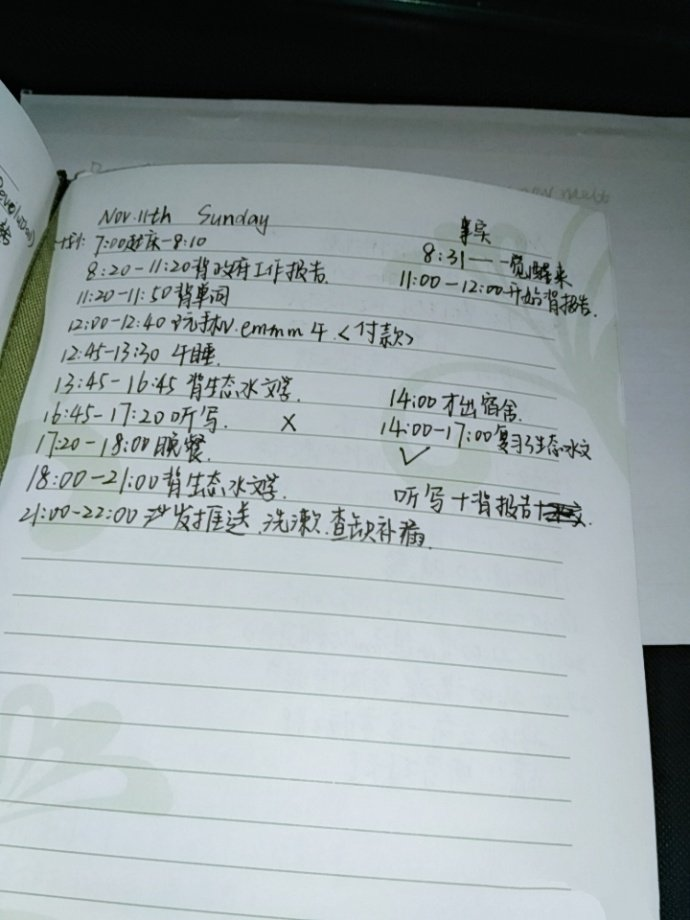 Nov.11th Sunday
事实
计划: 7:00起床-8:10
8:31——一觉醒来
8:20-11:20背政府工作报告.
11:00-12:00开始背报告.
11:20-11:50背单词
12:00-12:40 玩手机. emmm 午.<付款>
12:45-13:30 午睡.
13:45-16:45 背生态水文学.
14:00才出宿舍.
16:45-17:20听写. X
14:00-17:00复习生态水文
17:20-18:00晚餐. ✓
18:00-21:00背生态水文学.
听写+背报告+
21:00-22:00 发推送.洗漱.查缺补漏.